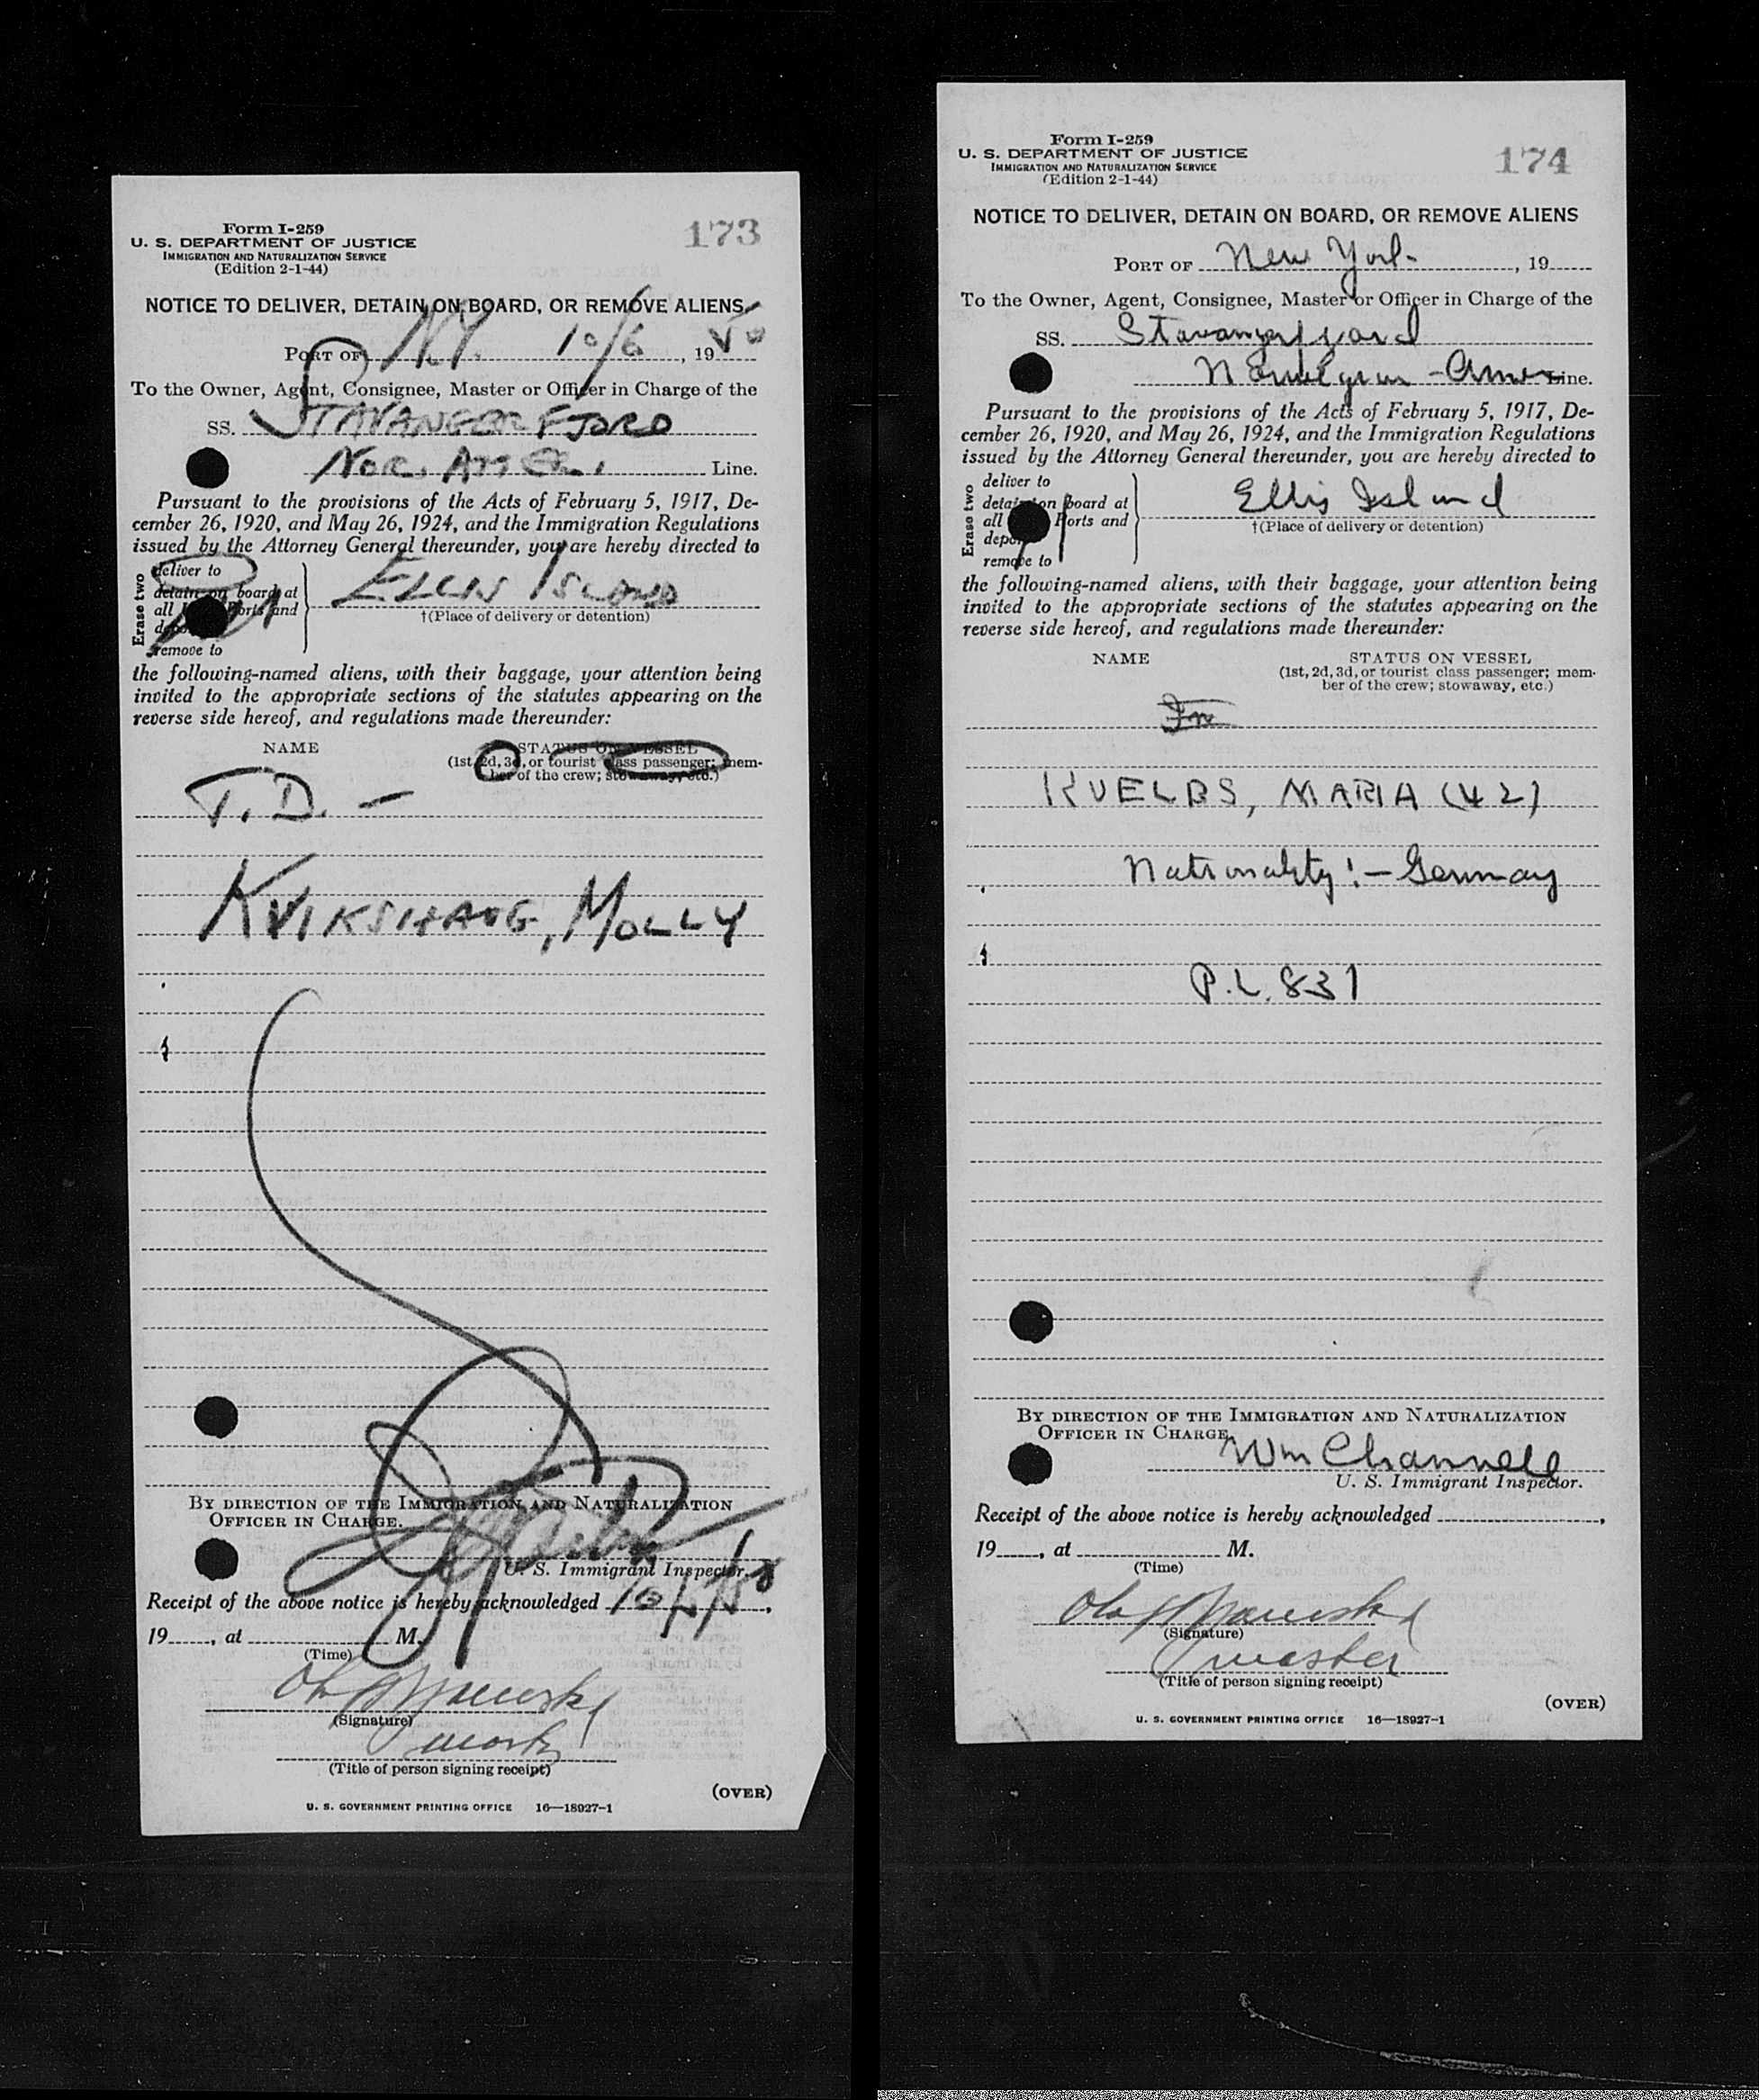 Form I-259
U. S. DEPARTMENT OF JUSTICE
IMMIGRATION AND NATURALIZATION SERVICE
(Edition 2-1-44)
173
NOTICE TO DELIVER, DETAIN ON BOARD, OR REMOVE ALIENS
PORT OF N.Y. 10/6, 1950
To the Owner, Agent, Consignee, Master or Officer in Charge of the
SS. STAVANGERFJORD
NOR. AMER. Line.
Pursuant to the provisions of the Acts of February 5, 1917, De-
cember 26, 1920, and May 26, 1924, and the Immigration Regulations
issued by the Attorney General thereunder, you are hereby directed to
Erase two
deliver to
detain on board at
all Ports and
remove to
ELLIS ISLAND
†(Place of delivery or detention)
the following-named aliens, with their baggage, your attention being
invited to the appropriate sections of the statutes appearing on the
reverse side hereof, and regulations made thereunder:
NAME
STATUS ON VESSEL
(1st, 2d, 3d, or tourist class passenger; mem-
ber of the crew; stowaway, etc.)
T.D. —
KVIKSHAUG, MOLLY
BY DIRECTION OF THE IMMIGRATION AND NATURALIZATION
OFFICER IN CHARGE.
U. S. Immigrant Inspector.
Receipt of the above notice is hereby acknowledged
19, at M.
(Time)
(Signature)
(Title of person signing receipt)
(OVER)
U. S. GOVERNMENT PRINTING OFFICE 16—18927-1
Form I-259
U. S. DEPARTMENT OF JUSTICE
IMMIGRATION AND NATURALIZATION SERVICE
(Edition 2-1-44)
174
NOTICE TO DELIVER, DETAIN ON BOARD, OR REMOVE ALIENS
PORT OF New York, 19
To the Owner, Agent, Consignee, Master or Officer in Charge of the
SS. Stavangerfjord
Norwegian - Amer Line.
Pursuant to the provisions of the Acts of February 5, 1917, De-
cember 26, 1920, and May 26, 1924, and the Immigration Regulations
issued by the Attorney General thereunder, you are hereby directed to
Erase two
deliver to
detain on board at
all Ports and
remove to
Ellis Island
†(Place of delivery or detention)
the following-named aliens, with their baggage, your attention being
invited to the appropriate sections of the statutes appearing on the
reverse side hereof, and regulations made thereunder:
NAME
STATUS ON VESSEL
(1st, 2d, 3d, or tourist class passenger; mem-
ber of the crew; stowaway, etc.)
KUELBS, MARIA (42)
Nationality:- Germany
P.L. 831
BY DIRECTION OF THE IMMIGRATION AND NATURALIZATION
OFFICER IN CHARGE.
Wm Channell
U. S. Immigrant Inspector.
Receipt of the above notice is hereby acknowledged ,
19, at M.
(Time)
(Signature)
master
(Title of person signing receipt)
(OVER)
U. S. GOVERNMENT PRINTING OFFICE 16—18927-1